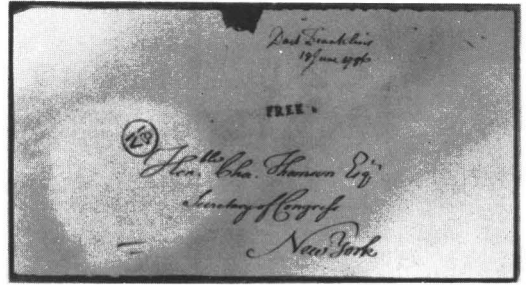 Doct Franklin's
18 June 1786
FREE
Hon.ble Cha. Thomson Esqr
Secretary of Congress
New York